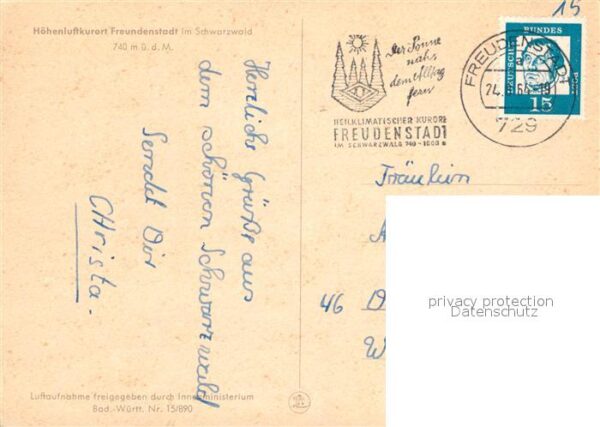 Höhenluftkurort Freundenstadt im Schwarzwald
740 m ü. d. M.
Herzliche Grüße aus
dem schönen Schwarzwald
Sendet Dir
Christa.
Luftaufnahme freigegeben durch Innenministerium
Bad.-Württ. Nr. 15/890
15
Der Sonne
nah
dem Alltag
fern
HEILKLIMATISCHER KURORT
FREUDENSTADT
IM SCHWARZWALD 740 - 1000 m
FREUDENSTADT
729
DEUTSCHE
BUNDES
POST
15
Fräulein
46 D
W
privacy protection
Datenschutz